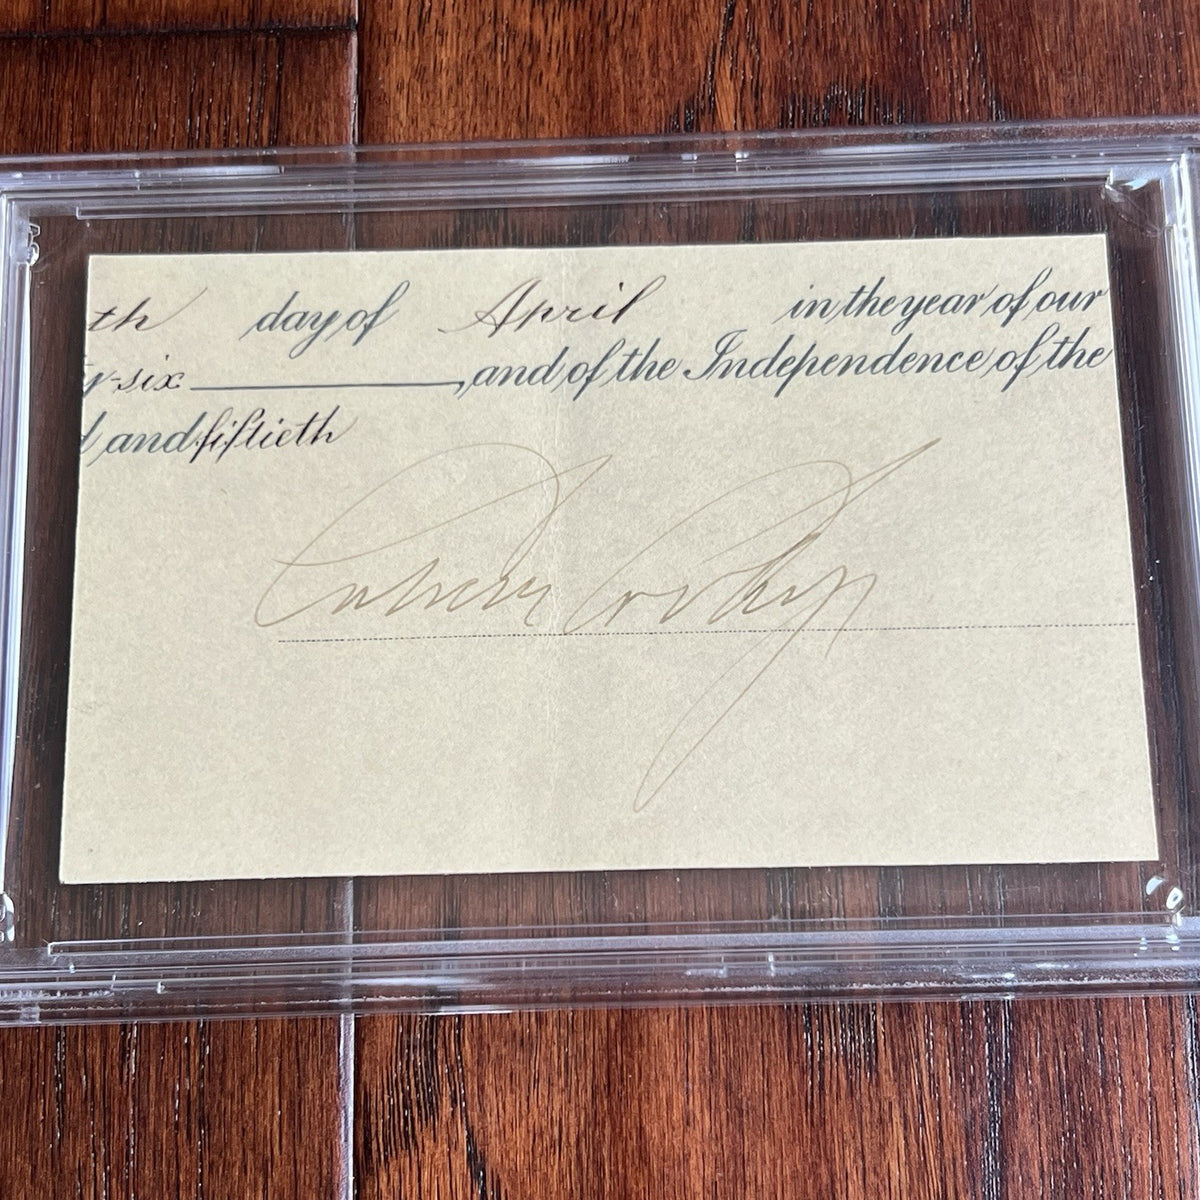 th day of April in the year of our
y-six, and of the Independence of the
d and fiftieth
Calvin Coolidge